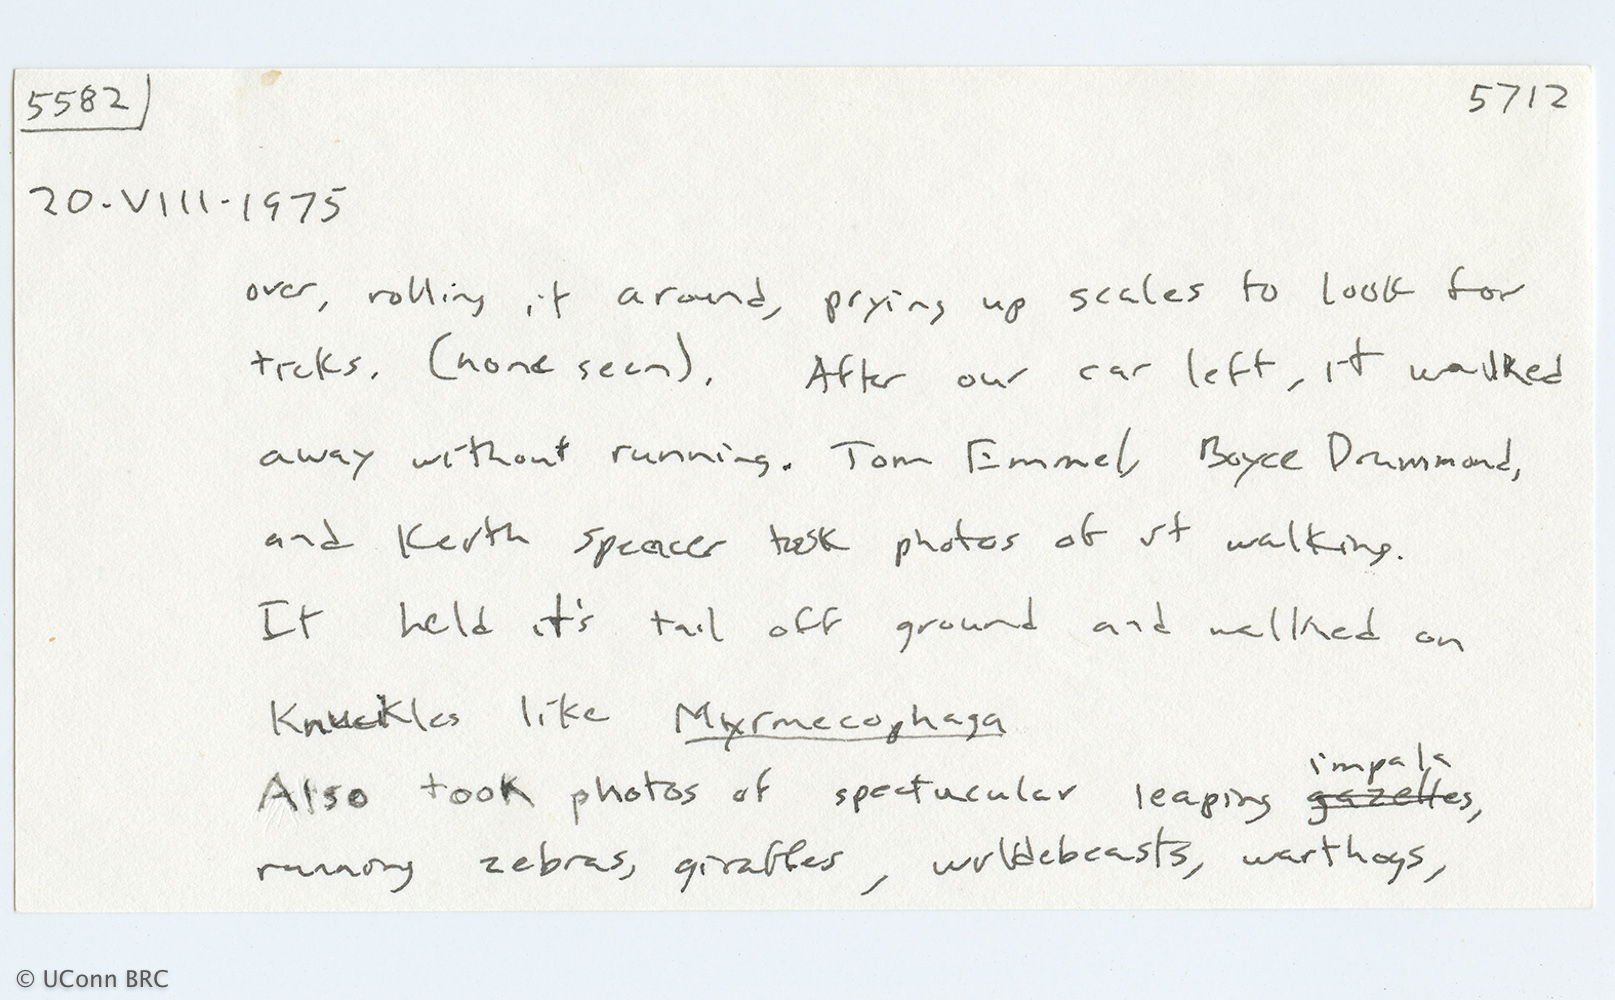 5582 5712
20.VIII.1975
over, rolling it around, prying up scales to look for
ticks. (none seen). After our car left, it walked
away without running. Tom Emmel, Boyce Drummond,
and Keith Spencer took photos of it walking.
It held it's tail off ground and walked on
Knuckles like Myrmecophaga
Also took photos of spectucular leaping gazelles, impala
running zebras, giraffes, wildebeasts, warthogs,
© UConn BRC